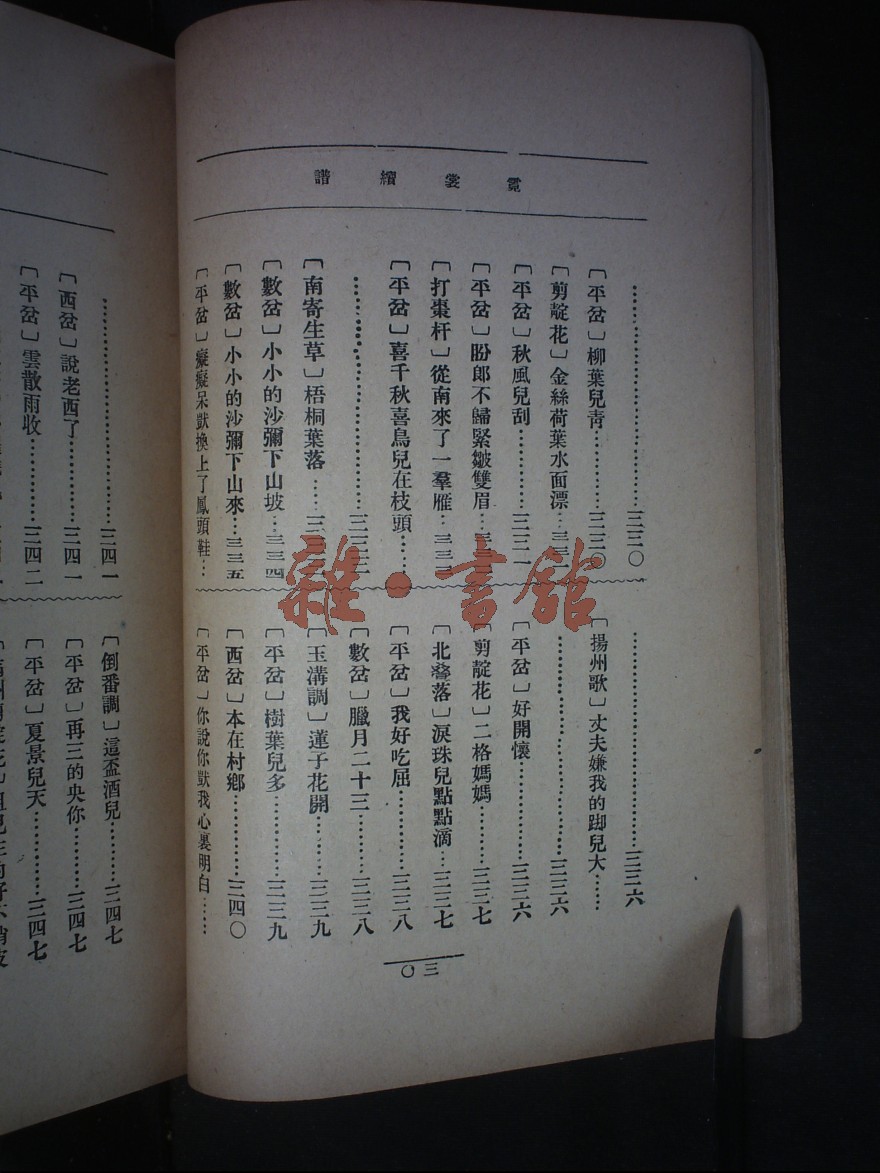 霓裳續譜
……三三〇
〔平岔〕柳葉兒靑……三三〇
〔剪靛花〕金絲荷葉水面漂…三三
〔平岔〕秋風兒刮……三三一
〔平岔〕盼郎不歸緊皺雙眉
〔打棗杆〕從南來了一羣雁
〔平岔〕喜千秋喜鳥兒在枝頭……
……三三三
〔南寄生草〕梧桐葉落……三三
〔數岔〕小小的沙彌下山坡…三三四
〔數岔〕小小的沙彌下山來…三三五
〔平岔〕癡癡呆獃換上了鳳頭鞋…
……三三六
〔揚州歌〕丈夫嫌我的脚兒大……
……三三六
〔平岔〕好開懷……三三六
〔剪靛花〕二格媽媽……三三七
〔北疊落〕淚珠兒點點滴…三三七
〔平岔〕我好吃屈……三三八
〔數岔〕臘月二十三……三三八
〔玉溝調〕蓮子花開……三三九
〔平岔〕樹葉兒多……三三九
〔西岔〕本在村鄉……三四〇
〔平岔〕你說你獃我心裏明白……
三〇
……三四一
〔西岔〕說老西了……三四一
〔平岔〕雲散雨收……三四二
〔倒番調〕這盃酒兒……三四七
〔平岔〕再三的央你……三四七
〔平岔〕夏景兒天……三四七
雜·書館